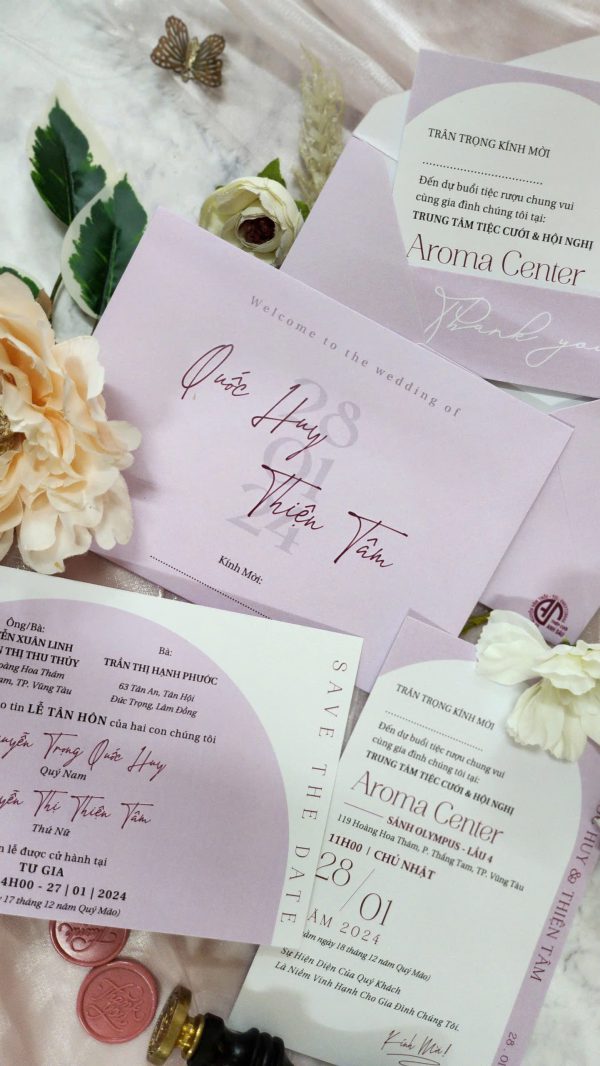 TRÂN TRỌNG KÍNH MỜI
Đến dự buổi tiệc rượu chung vui
cùng gia đình chúng tôi tại:
TRUNG TÂM TIỆC CƯỚI & HỘI NGHỊ
Aroma Center
Thank you
Welcome to the wedding of
Quốc Huy
28
01
24
Thiện Tâm
Kính Mời:
Ông/Bà:
ỄN XUÂN LINH
N THỊ THU THỦY
oàng Hoa Thám
am, TP. Vũng Tàu
Bà:
TRẦN THỊ HẠNH PHƯỚC
63 Tân An, Tân Hội
Đức Trọng, Lâm Đồng
o tin LỄ TÂN HÔN của hai con chúng tôi
uyễn Trọng Quốc Huy
Quý Nam
yễn Thị Thiên Tâm
Thứ Nữ
n lễ được cử hành tại
TƯ GIA
4H00 - 27 | 01 | 2024
y 17 tháng 12 năm Quý Mão)
SAVE THE DATE
TRÂN TRỌNG KÍNH MỜI
Đến dự buổi tiệc rượu chung vui
cùng gia đình chúng tôi tại:
TRUNG TÂM TIỆC CƯỚI & HỘI NGHỊ
Aroma Center
SẢNH OLYMPUS - LẦU 4
119 Hoàng Hoa Thám, P. Thắng Tam, TP. Vũng Tàu
11H00 | CHỦ NHẬT
28/01
ĂM 2024
hằm ngày 18 tháng 12 năm Quý Mão)
Sự Hiện Diện Của Quý Khách
Là Niềm Vinh Hạnh Cho Gia Đình Chúng Tôi.
Kính Mời!
HUY & THIÊN TÂM
28. 01